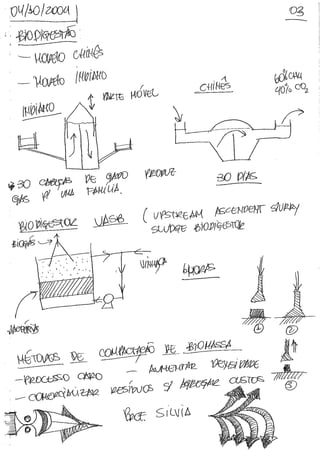 04/10/2001
03
BIODIGESTÃO
— MODELO CHINÊS
— MODELO INDIANO
PARTE MÓVEL
CHINÊS
60% CH4
40% CO2
INDIANO
30 CABEÇAS DE GADO PRODUZ
GÁS P/ UMA FAMÍLIA.
30 DIAS
BIODIGESTOR UASB (UPSTREAM ASCENDENT SLURRY
SLUDGE BIODIGESTOR
BIOGÁS
VINHAÇA
6 HORAS
BACTÉRIAS
1
2
MÉTODOS DE COMPACTAÇÃO DE BIOMASSA
— PROCESSO CARO — AUMENTAR DENSIDADE
3
— COMERCIALIZAR RESÍDUOS S/ AGREGAR CUSTOS
PROF. SILVIA